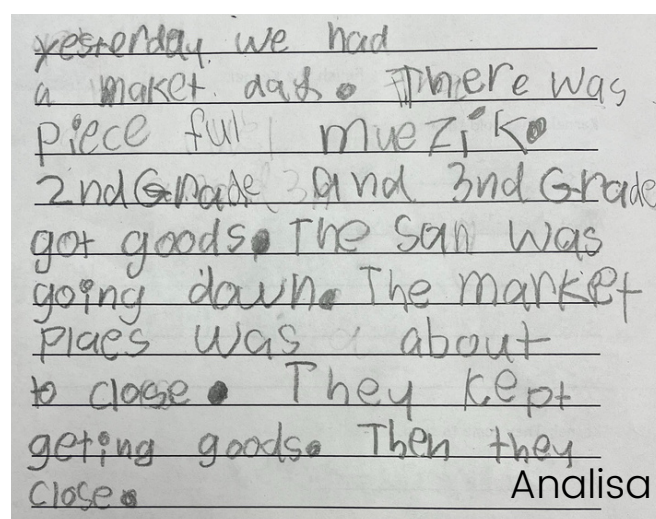 yesterday we had
a maket day. There was
piece full muezik.
2nd Grade and 3nd Grade
got goods. The san was
going down. The market
plaes was about
to close. They kept
geting goods. Then they
close.
Analisa